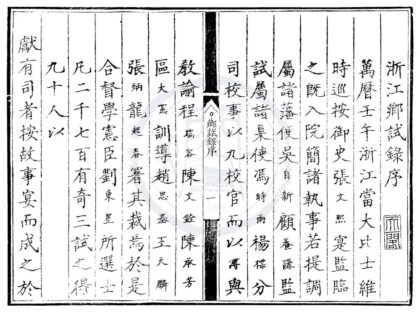 浙江鄉試錄序
萬曆壬午浙江當大比士維
時巡按御史張文熙寔監臨
之既入院簡諸執事若提調
屬諸藩使吳自新顧養謙監
試屬諸臬使馮時雨楊分
司校事以九校官而以與
鄉試錄序
一
教諭程陳文銓陳承芳
區大訓導趙思基王天
張炳龍署其裁焉於是
合督學憲臣劉東星所選士
凡二千七百有奇三試之得
九十人以
獻有司者按故事寔而成之於